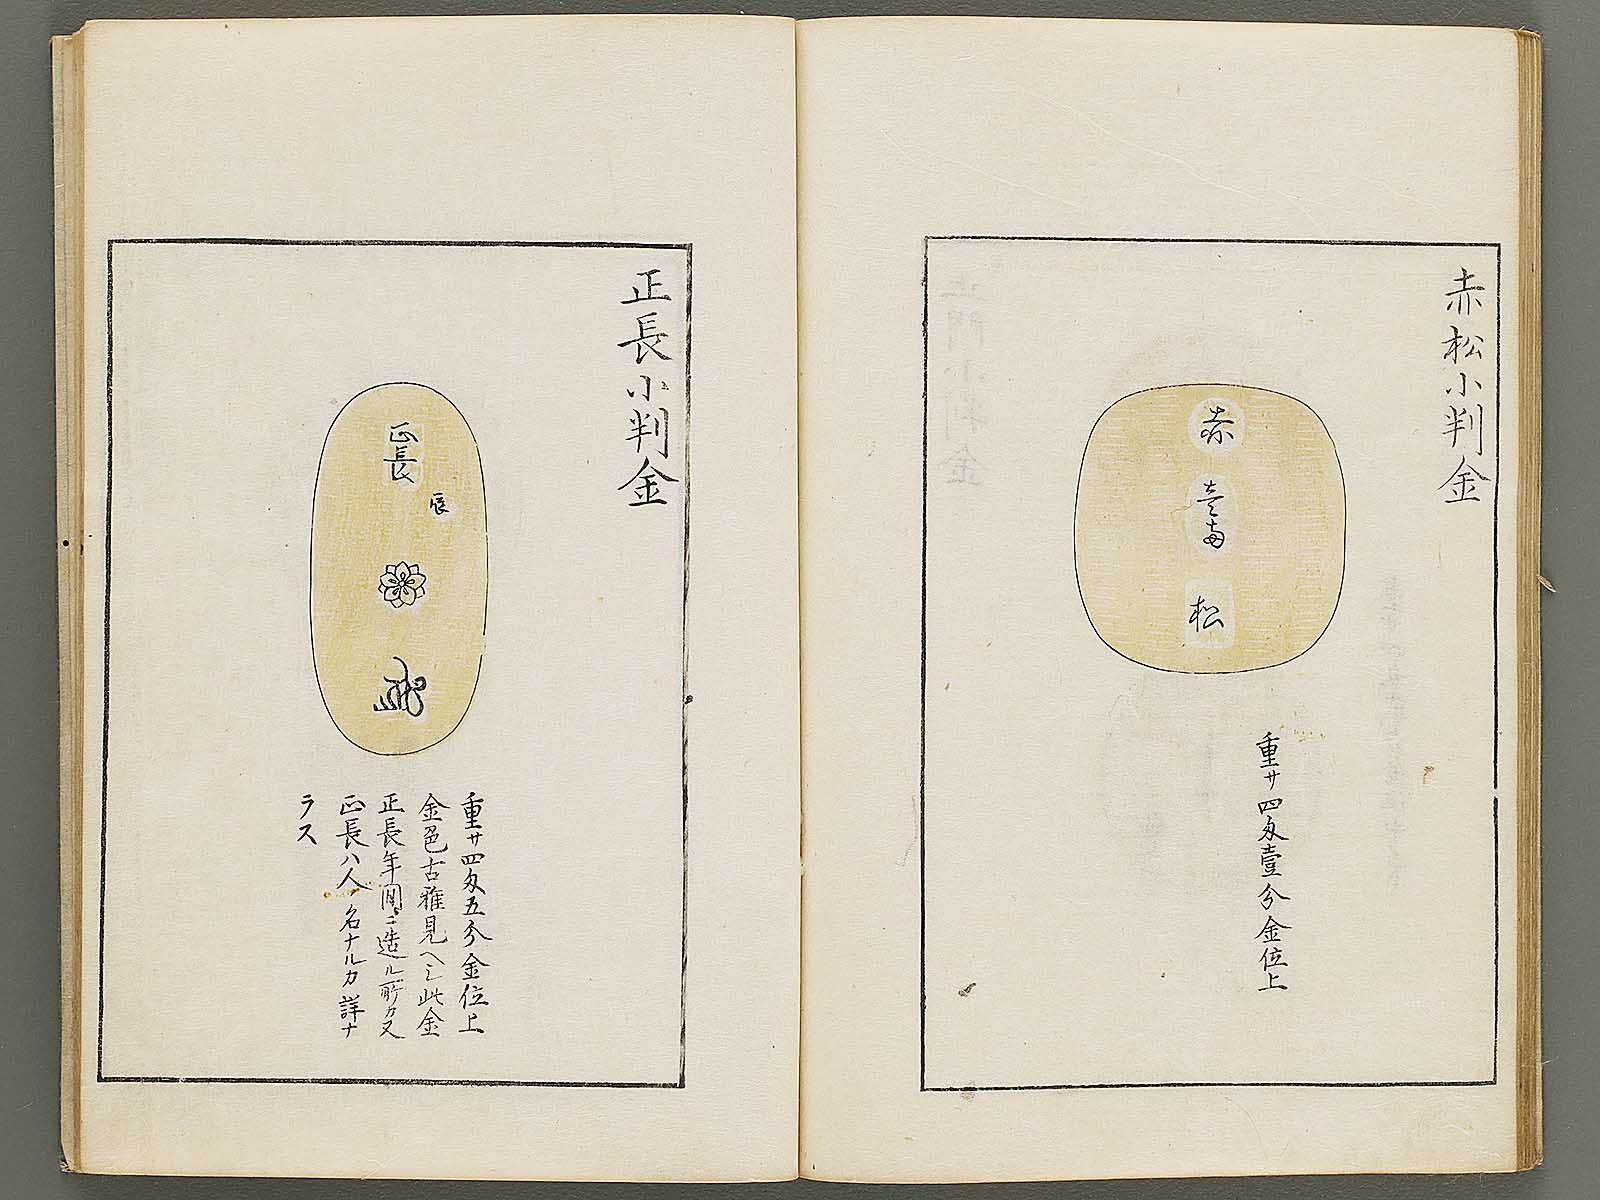 赤松小判金
赤
壹両
松
重サ四匁壹分金位上
正長小判金
正長
辰
重サ四匁五分金位上
金色古雅見ヘシ此金
正長年間ニ造ル所カ又
正長ハ人ノ名ナルカ詳ナ
ラス